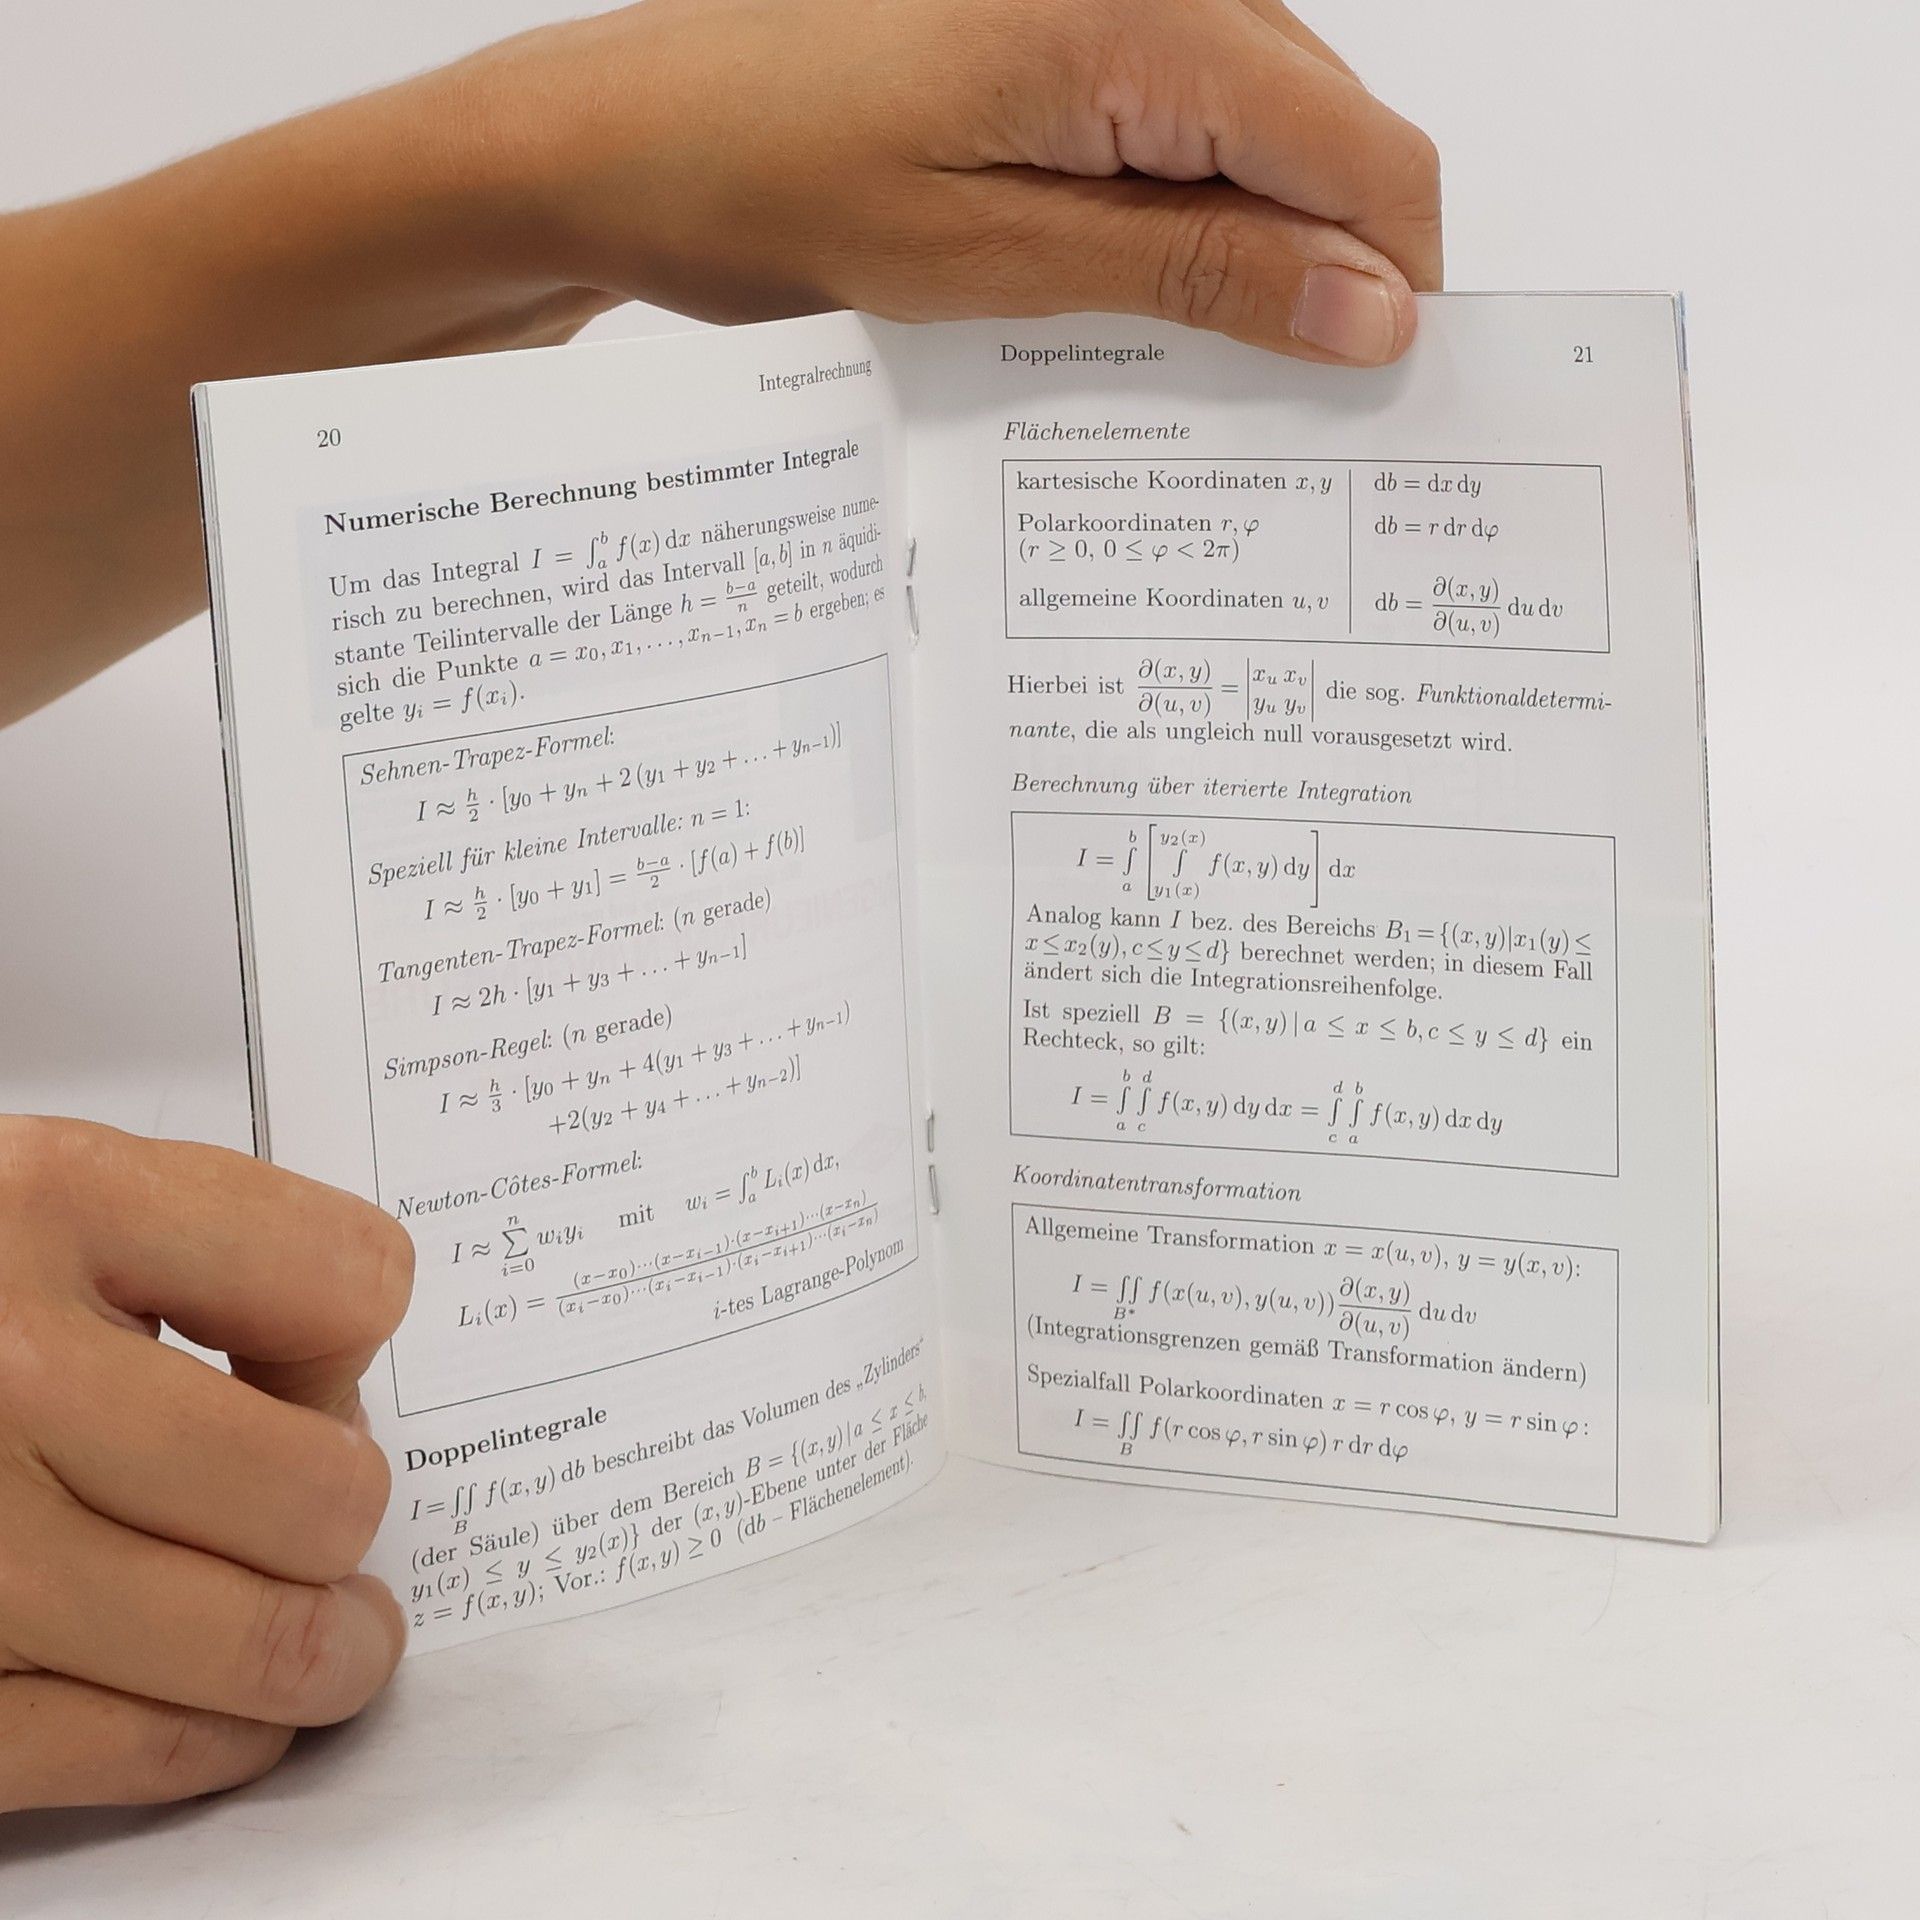 20
Integralrechnung
Numerische Berechnung bestimmter Integrale
Um das Integral I = ∫_a^b f(x) dx näherungsweise nume-
risch zu berechnen, wird das Intervall [a, b] in n äquidi-
stante Teilintervalle der Länge h = (b−a)/n geteilt, wodurch
sich die Punkte a = x₀, x₁, . . . , xₙ₋₁, xₙ = b ergeben; es
gelte yᵢ = f(xᵢ).
Sehnen-Trapez-Formel:
I ≈ h/2 · [y₀ + yₙ + 2 (y₁ + y₂ + . . . + yₙ₋₁)]
Speziell für kleine Intervalle: n = 1:
I ≈ h/2 · [y₀ + y₁] = (b−a)/2 · [f(a) + f(b)]
Tangenten-Trapez-Formel: (n gerade)
I ≈ 2h · [y₁ + y₃ + . . . + yₙ₋₁]
Simpson-Regel: (n gerade)
I ≈ h/3 · [y₀ + yₙ + 4(y₁ + y₃ + . . . + yₙ₋₁)
+2(y₂ + y₄ + . . . + yₙ₋₂)]
Newton-Côtes-Formel:
I ≈ ∑_{i=0}^n wᵢyᵢ mit wᵢ = ∫_a^b Lᵢ(x) dx,
Lᵢ(x) = ((x−x₀)···(x−xᵢ₋₁)·(x−xᵢ₊₁)···(x−xₙ))/((xᵢ−x₀)···(xᵢ−xᵢ₋₁)·(xᵢ−xᵢ₊₁)···(xᵢ−xₙ))
i-tes Lagrange-Polynom
Doppelintegrale
I = ∬_B f(x, y) db beschreibt das Volumen des „Zylinders“
(der Säule) über dem Bereich B = {(x, y) | a ≤ x ≤ b,
y₁(x) ≤ y ≤ y₂(x)} der (x, y)-Ebene unter der Fläche
z = f(x, y); Vor.: f(x, y) ≥ 0 (db – Flächenelement).
Doppelintegrale
21
Flächenelemente
kartesische Koordinaten x, y db = dx dy
Polarkoordinaten r, φ db = r dr dφ
(r ≥ 0, 0 ≤ φ < 2π)
allgemeine Koordinaten u, v db = ∂(x, y)/∂(u, v) du dv
Hierbei ist ∂(x, y)/∂(u, v) = |x_u x_v; y_u y_v| die sog. Funktionaldetermi-
nante, die als ungleich null vorausgesetzt wird.
Berechnung über iterierte Integration
I = ∫_a^b [∫_{y₁(x)}^{y₂(x)} f(x, y) dy] dx
Analog kann I bez. des Bereichs B₁ = {(x, y)|x₁(y) ≤
x ≤ x₂(y), c ≤ y ≤ d} berechnet werden; in diesem Fall
ändert sich die Integrationsreihenfolge.
Ist speziell B = {(x, y) | a ≤ x ≤ b, c ≤ y ≤ d} ein
Rechteck, so gilt:
I = ∫_a^b ∫_c^d f(x, y) dy dx = ∫_c^d ∫_a^b f(x, y) dx dy
Koordinatentransformation
Allgemeine Transformation x = x(u, v), y = y(x, v):
I = ∬_{B*} f(x(u, v), y(u, v)) ∂(x, y)/∂(u, v) du dv
(Integrationsgrenzen gemäß Transformation ändern)
Spezialfall Polarkoordinaten x = r cos φ, y = r sin φ:
I = ∬_B f(r cos φ, r sin φ) r dr dφ